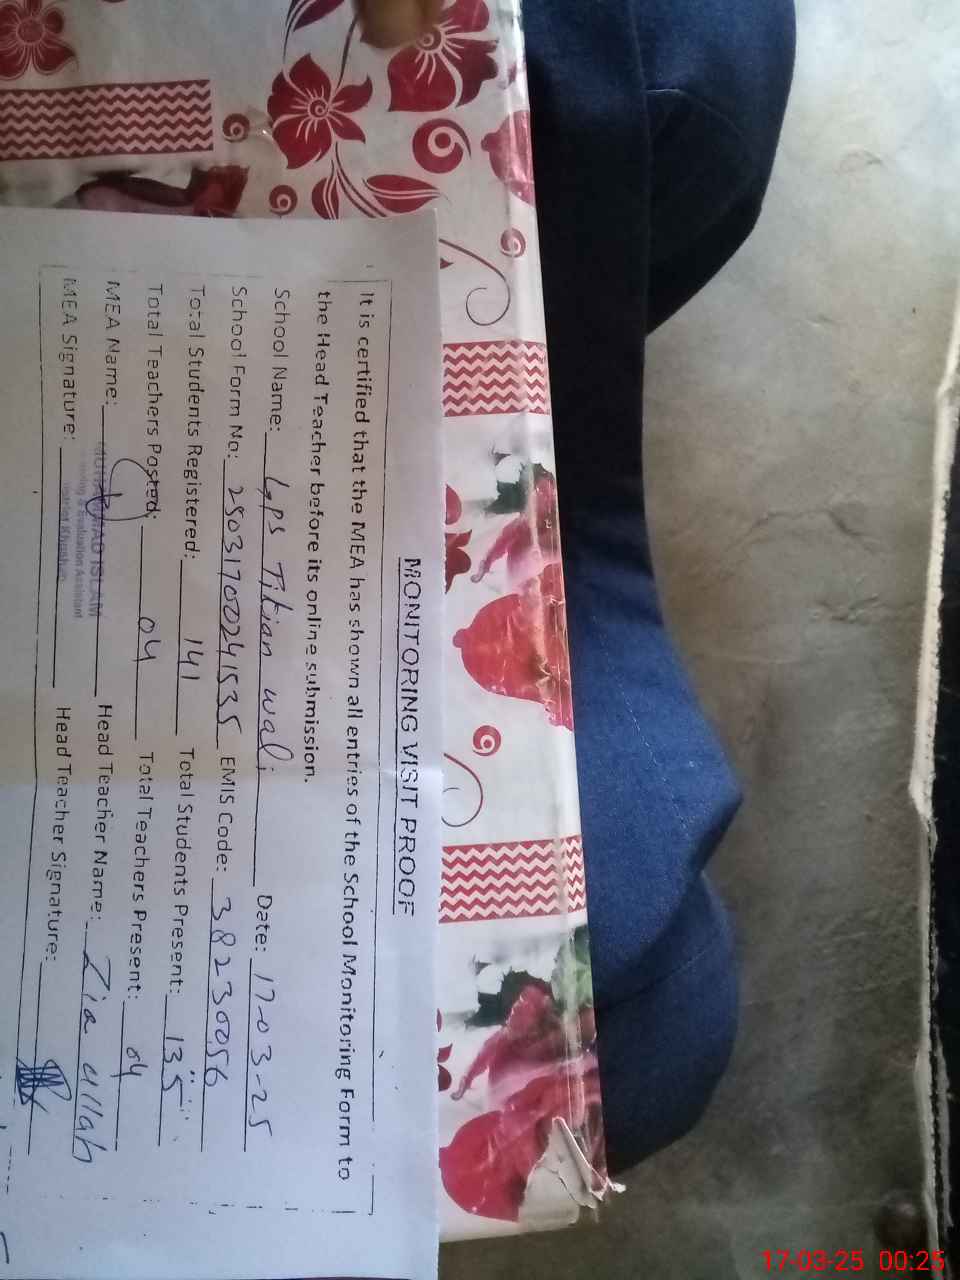 MONITORING VISIT PROOF
It is certified that the MEA has shown all entries of the School Monitoring Form to
the Head Teacher before its online submission.
School Name: GPS Titian wali Date: 17-03-25
School Form No: 25031700241535 EMIS Code: 38230056
Total Students Registered: 141 Total Students Present: 135
Total Teachers Posted: 04 Total Teachers Present: 04
MEA Name: MUHAMMAD ISLAM Head Teacher Name: Zia ullah
Monitoring & Evaluation Assistant
District Khushab
MEA Signature: Head Teacher Signature:
17-03-25 00:25